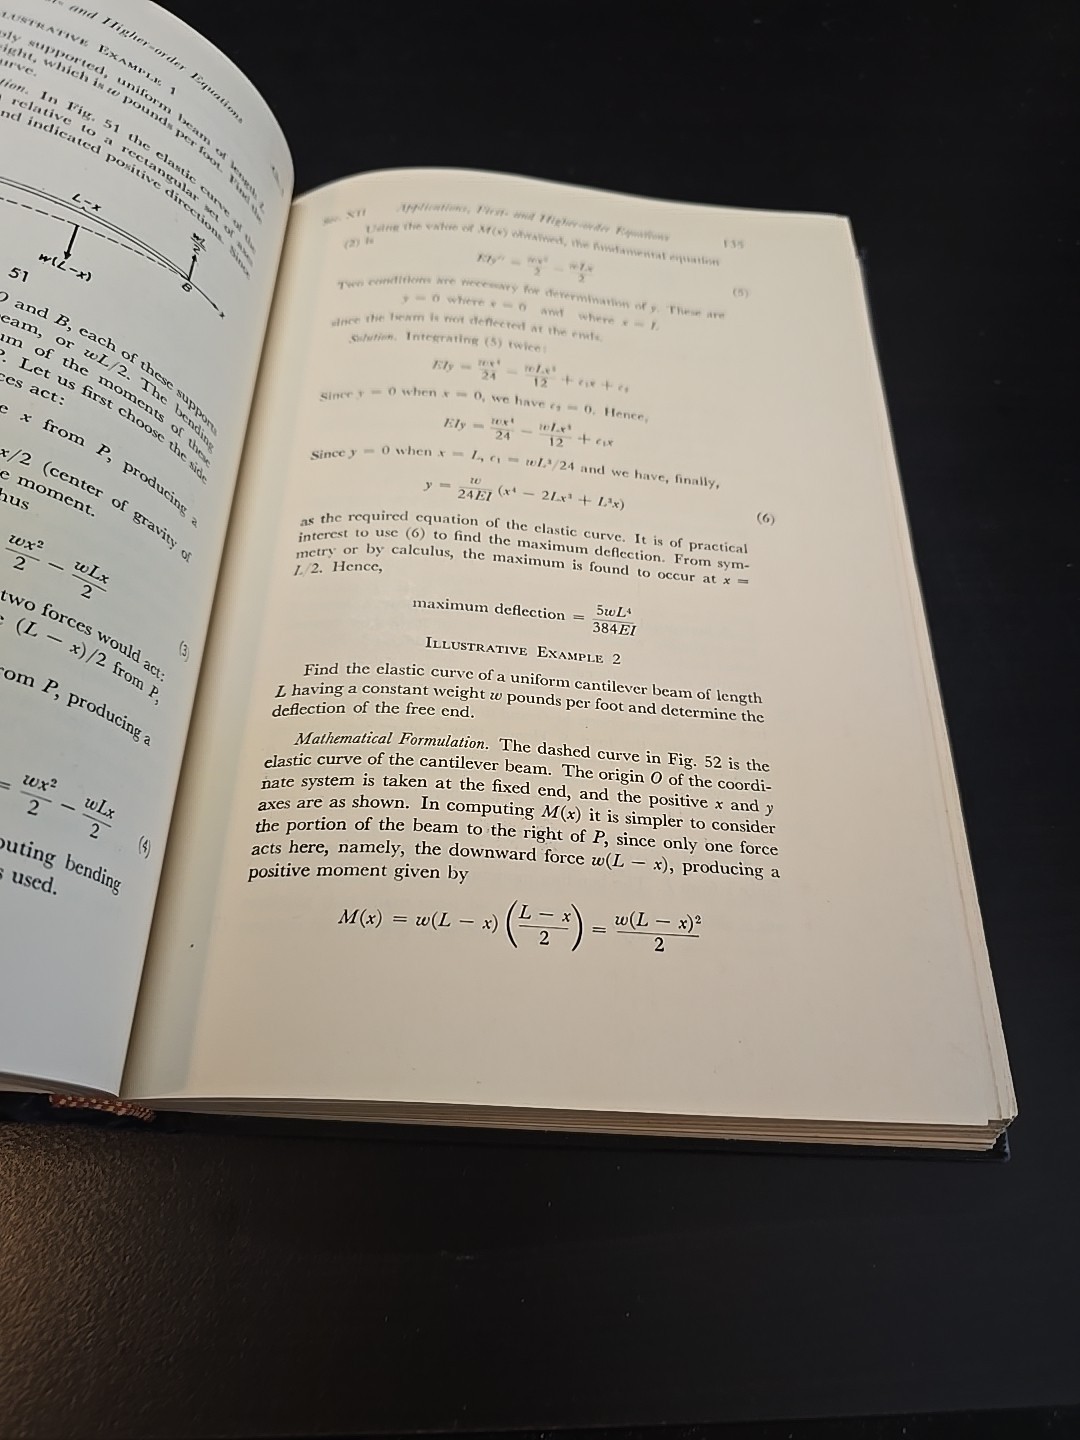 and Higher-order Equations
ILLUSTRATIVE EXAMPLE 1
supported, uniform beam of length L,
which is w pounds per foot. Find the
curve.
In Fig. 51 the elastic curve of the
relative to a rectangular set of axes
and indicated positive directions. Since
L-x
wL/2
w(L-x)
B
51
O and B, each of these supports
beam, or wL/2. The bending
sum of the moments of these
P. Let us first choose the side
forces act:
x from P, producing a
x/2 (center of gravity of
moment.
thus
wx²/2 − wLx/2
(3)
two forces would act:
(L − x)/2 from P,
from P, producing a
= wx²/2 − wLx/2
(4)
computing bending
used.
Sec. XII Applications, First- and Higher-order Equations 135
Using the value of M(x) obtained, the fundamental equation
(2) is
EIy″ = wx²/2 − wLx/2 (5)
Two conditions are necessary for determination of y. These are
y = 0 where x = 0 and where x = L
since the beam is not deflected at the ends.
Solution. Integrating (5) twice:
EIy = wx⁴/24 − wLx³/12 + c₁x + c₂
Since y = 0 when x = 0, we have c₂ = 0. Hence,
EIy = wx⁴/24 − wLx³/12 + c₁x
Since y = 0 when x = L, c₁ = wL³/24 and we have, finally,
y = w/24EI (x⁴ − 2Lx³ + L³x) (6)
as the required equation of the elastic curve. It is of practical
interest to use (6) to find the maximum deflection. From sym-
metry or by calculus, the maximum is found to occur at x =
L/2. Hence,
maximum deflection = 5wL⁴/384EI
ILLUSTRATIVE EXAMPLE 2
Find the elastic curve of a uniform cantilever beam of length
L having a constant weight w pounds per foot and determine the
deflection of the free end.
Mathematical Formulation. The dashed curve in Fig. 52 is the
elastic curve of the cantilever beam. The origin O of the coordi-
nate system is taken at the fixed end, and the positive x and y
axes are as shown. In computing M(x) it is simpler to consider
the portion of the beam to the right of P, since only one force
acts here, namely, the downward force w(L − x), producing a
positive moment given by
M(x) = w(L − x) ((L − x)/2) = w(L − x)²/2